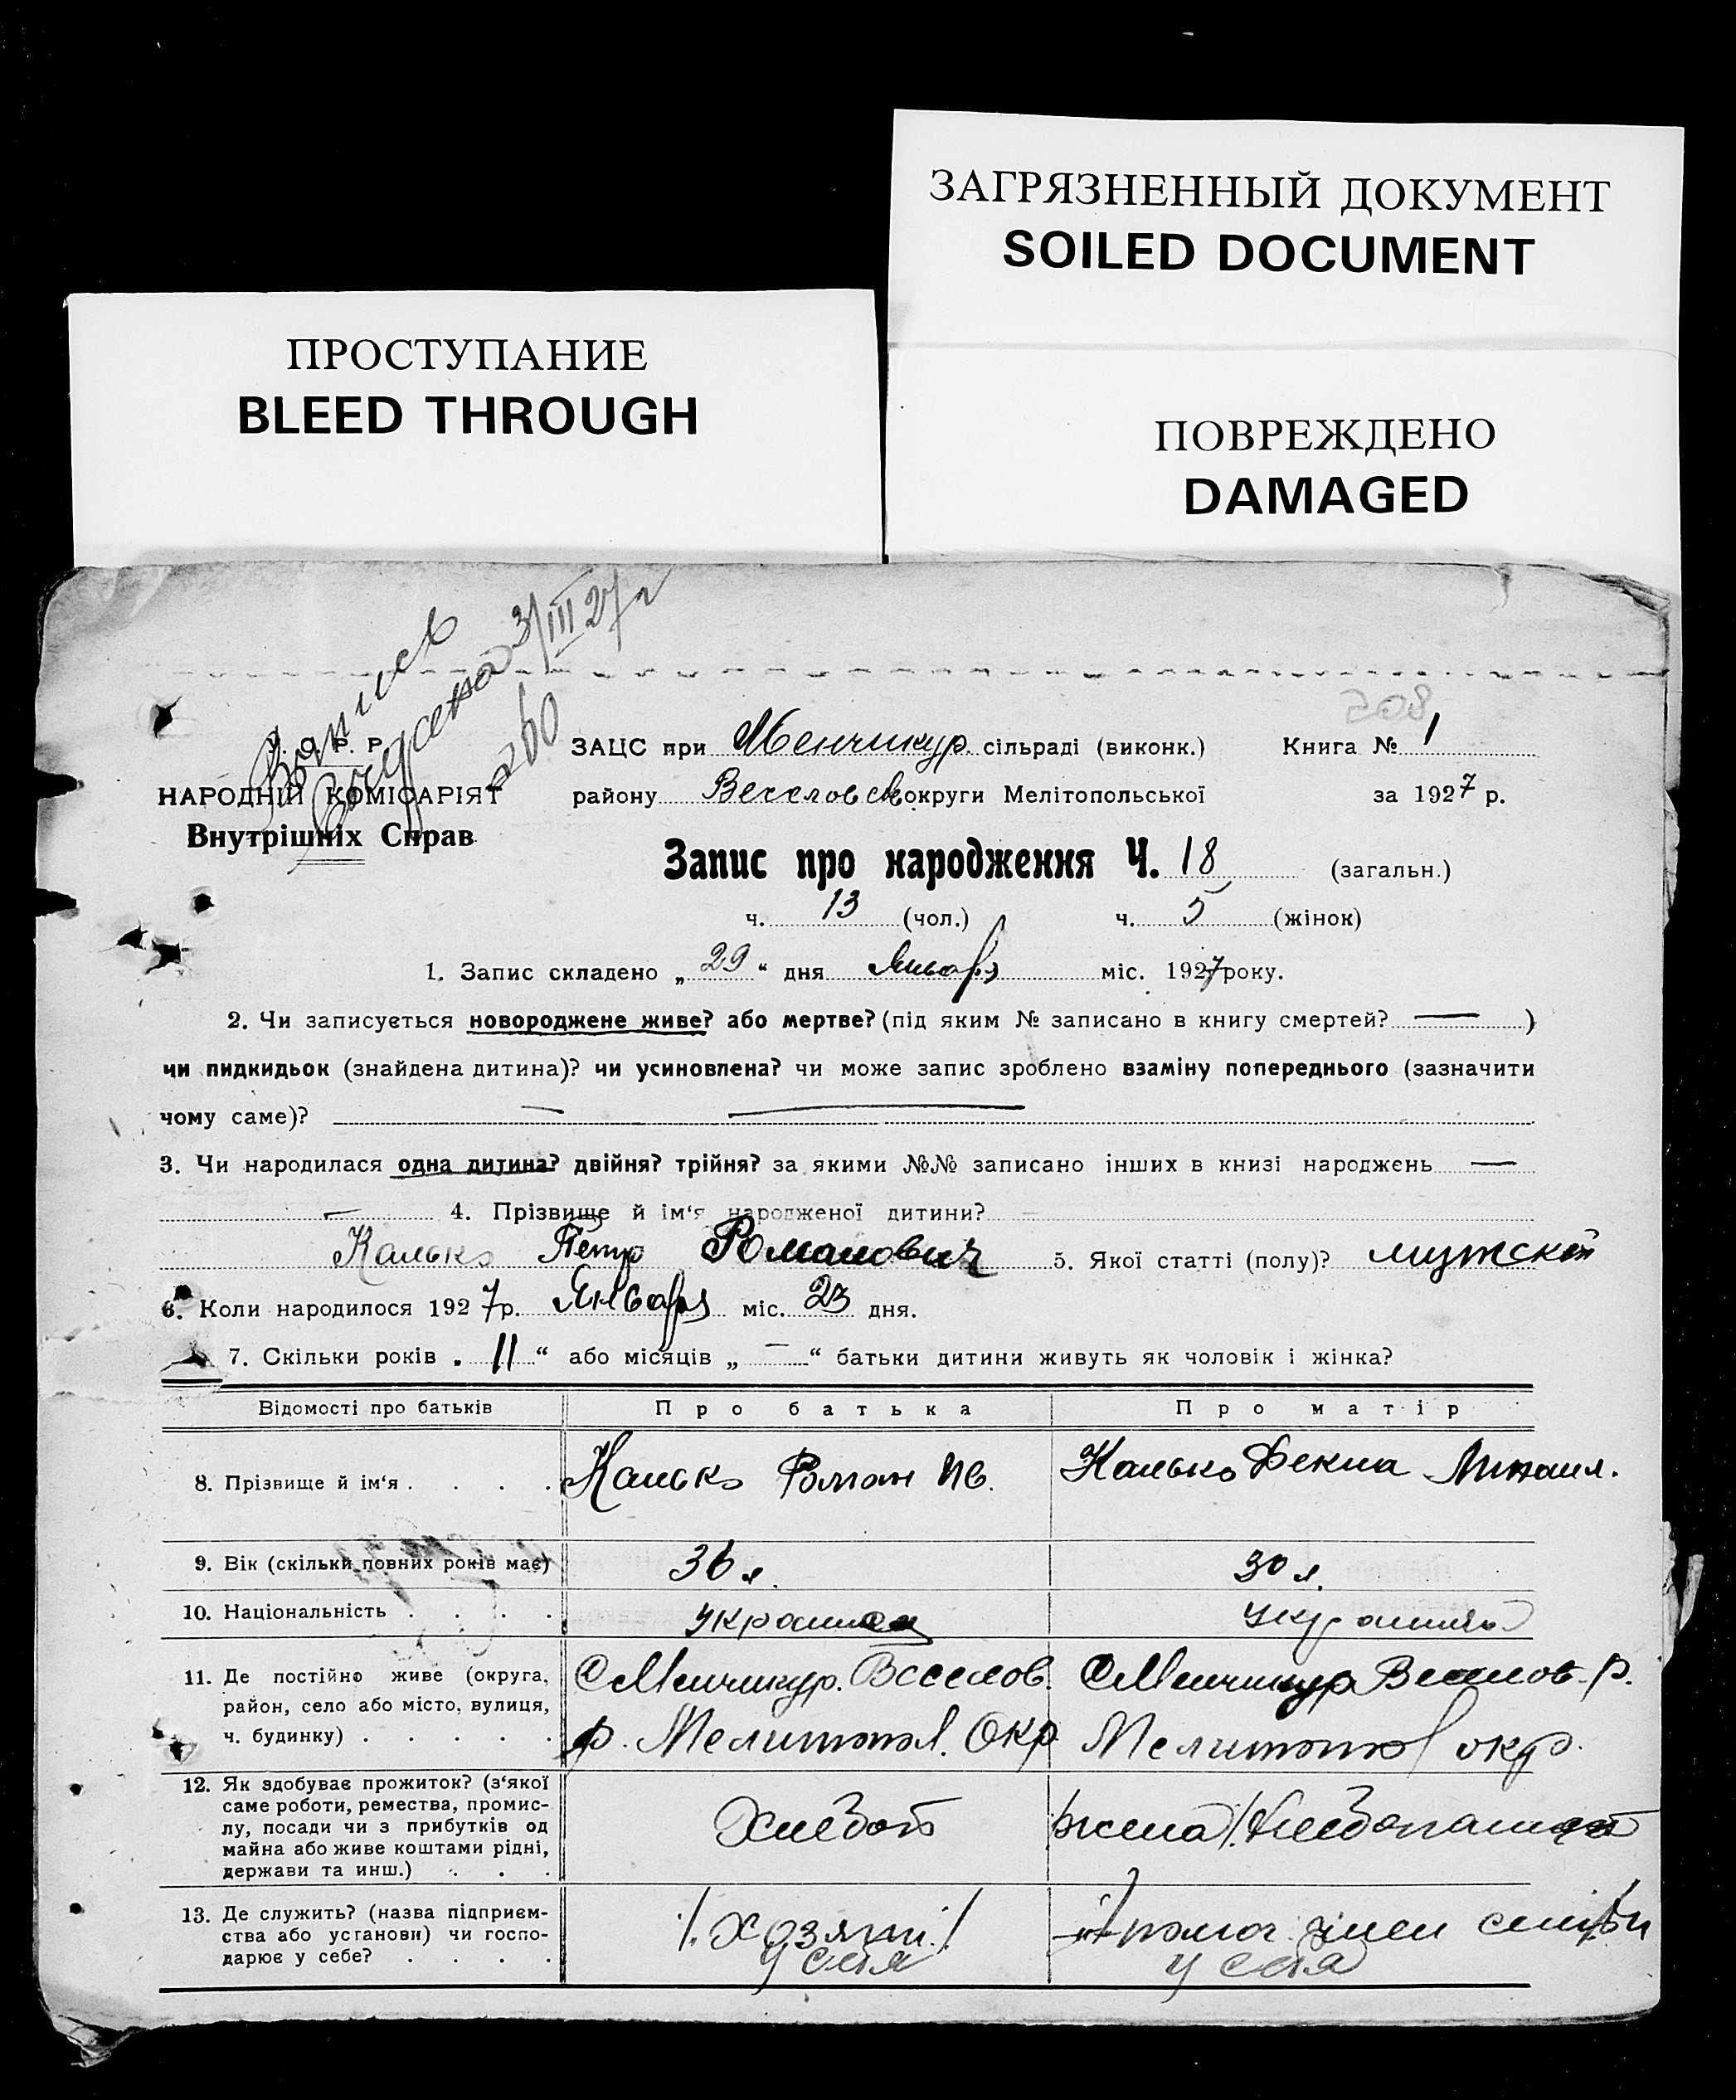 ЗАГРЯЗНЕННЫЙ ДОКУМЕНТ
SOILED DOCUMENT
ПРОСТУПАНИЕ
BLEED THROUGH
ПОВРЕЖДЕНО
DAMAGED
3/III 27 г
208
У. С. Р. Р.
НАРОДНІЙ КОМІСАРІЯТ
Внутрішніх Справ
ЗАЦС при Менчикур. сільраді (виконк.) Книга № 1
району Веселовск округи Мелітопольської за 1927 р.
Запис про народження Ч. 18 (загальн.)
ч. 13 (чол.) ч. 5 (жінок)
1. Запис складено „ 29 “ дня Января міс. 1927 року.
2. Чи записується новороджене живе? або мертве? (під яким № записано в книгу смертей? — )
чи пидкидьок (знайдена дитина)? чи усиновлена? чи може запис зроблено взаміну попереднього (зазначити
чому саме)? — —
3. Чи народилася одна дитина? двійня? трійня? за якими №№ записано інших в книзі народжень —
— 4. Прізвище й ім‘я народженої дитини?
Калько Петр Романович 5. Якої статті (полу)? мужской
6. Коли народилося 1927 р. Января міс. 23 дня.
7. Скільки років „ 11 “ або місяців „ — “ батьки дитини живуть як чоловік і жінка?
Відомості про батьків Про батька Про матір
8. Прізвище й ім‘я . . . . Калько Роман Ив. Калько Фекла Михаил.
9. Вік (скільки повних років має) 36 л. 30 л.
10. Національність . . . . украинец украинка
11. Де постійно живе (округа, С Менчикур. Веселов. С Менчикур Веселов. р.
район, село або місто, вулиця,
ч. будинку) . . . . . р. Мелитопол. Окр. Мелитопол окр.
12. Як здобуває прожиток? (з‘якої
саме роботи, ремества, промис-
лу, посади чи з прибутків од
майна або живе коштами рідні,
держави та инш.) . . . Хлебоп /жена/
13. Де служить? (назва підприєм-
ства або установи) чи госпо-
дарює у себе? . . . . /. хозяин ./ член семьи
у себя у себя